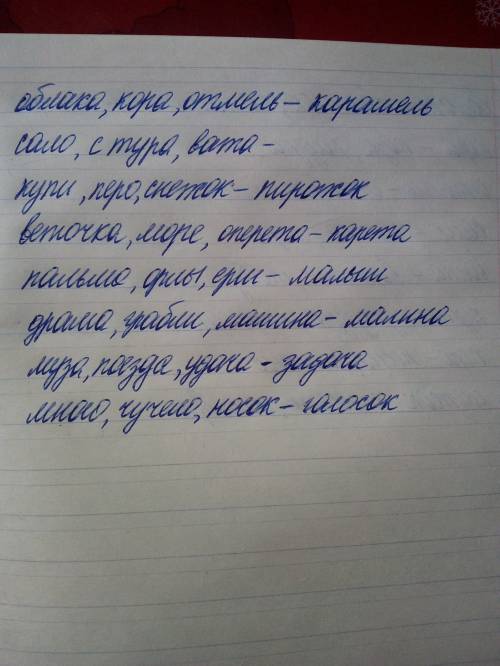 облака, кора, отмель – карамель
сало, с тура, вата –
купи, перо, снежок – пирожок
веточка, море, оперета – карета
пальма, орлы, ерш – малыш
драма, грабли, машина – малина
муза, поезда, удача – задача
много, чучело, носок – голосок